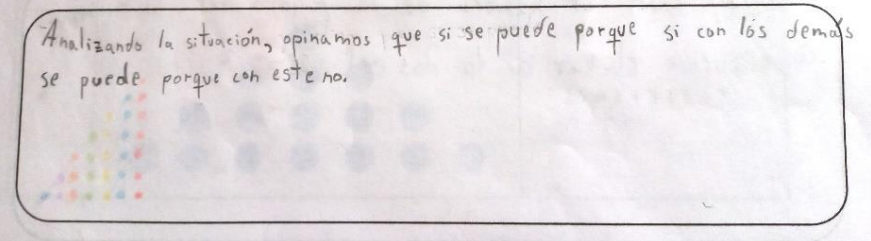 Analizando la situación, opinamos que si se puede porque si con lós demás
se puede porque con este no.